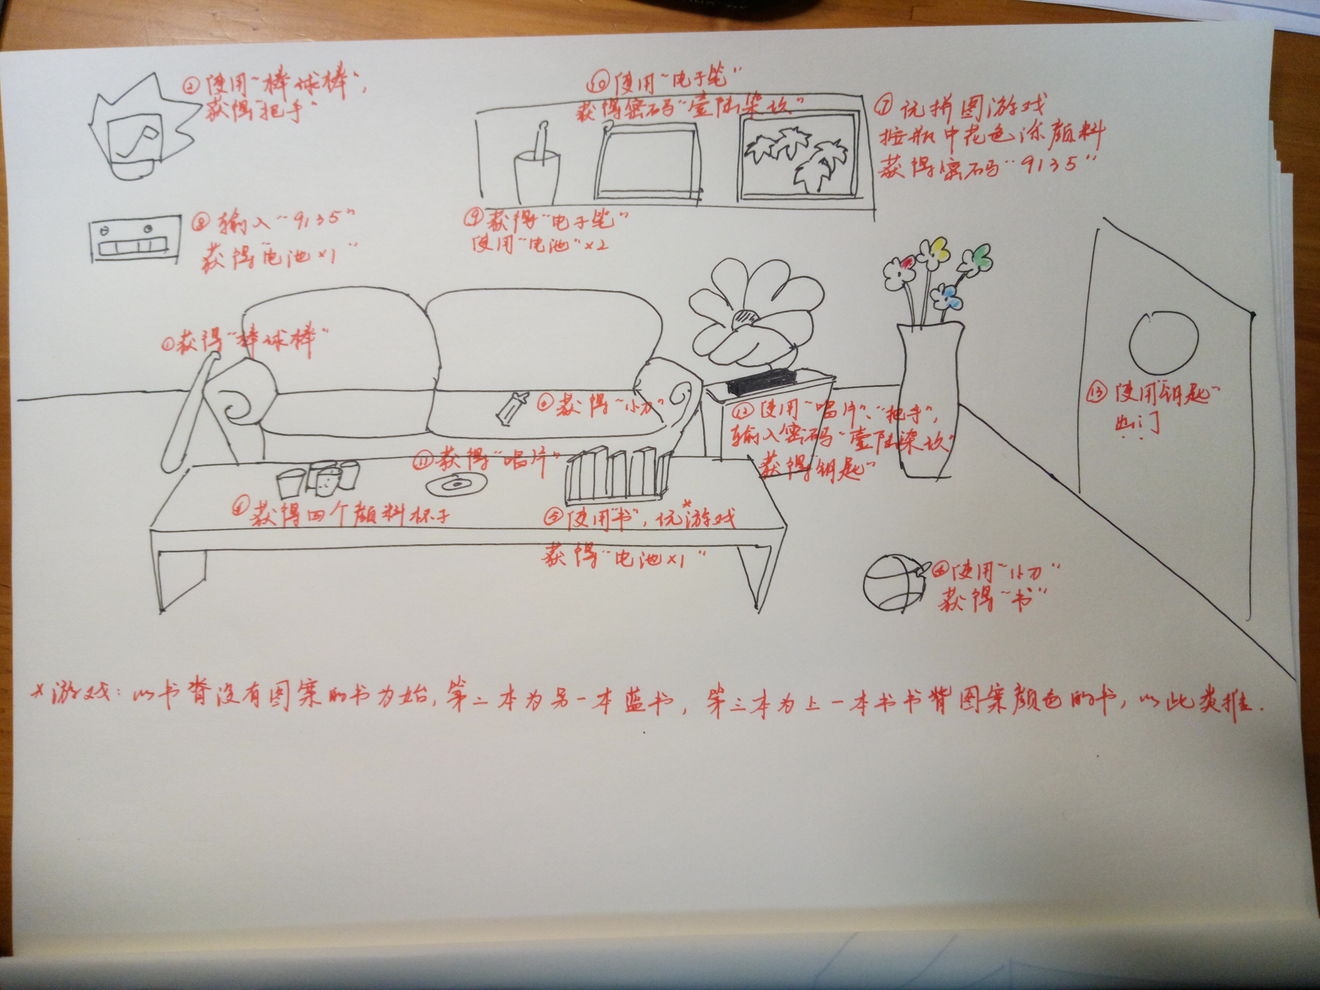 ②使用"棒球棒",
获得"把手"
⑩使用"电子笔"
获得密码"壹陆柒玖"
⑦玩拼图游戏
按瓶中花色涂颜料
获得密码"9135"
⑧输入"9135"
获得"电池×1"
⑨获得"电子笔"
使用"电池"×2
①获得"棒球棒"
获得"小刀"
⑪获得"唱片"
⑫使用"唱片"、"把手",
输入密码"壹陆柒玖"
获得钥匙"
⑬使用"钥匙"
出门
获得四个颜料杯子
⑤使用"书", 玩*游戏
获得"电池×1"
使用"小刀"
获得"书"
*游戏:以书脊没有图案的书为始,第二本为另一本蓝书,第三本为上一本书书背图案颜色的书,以此类推.